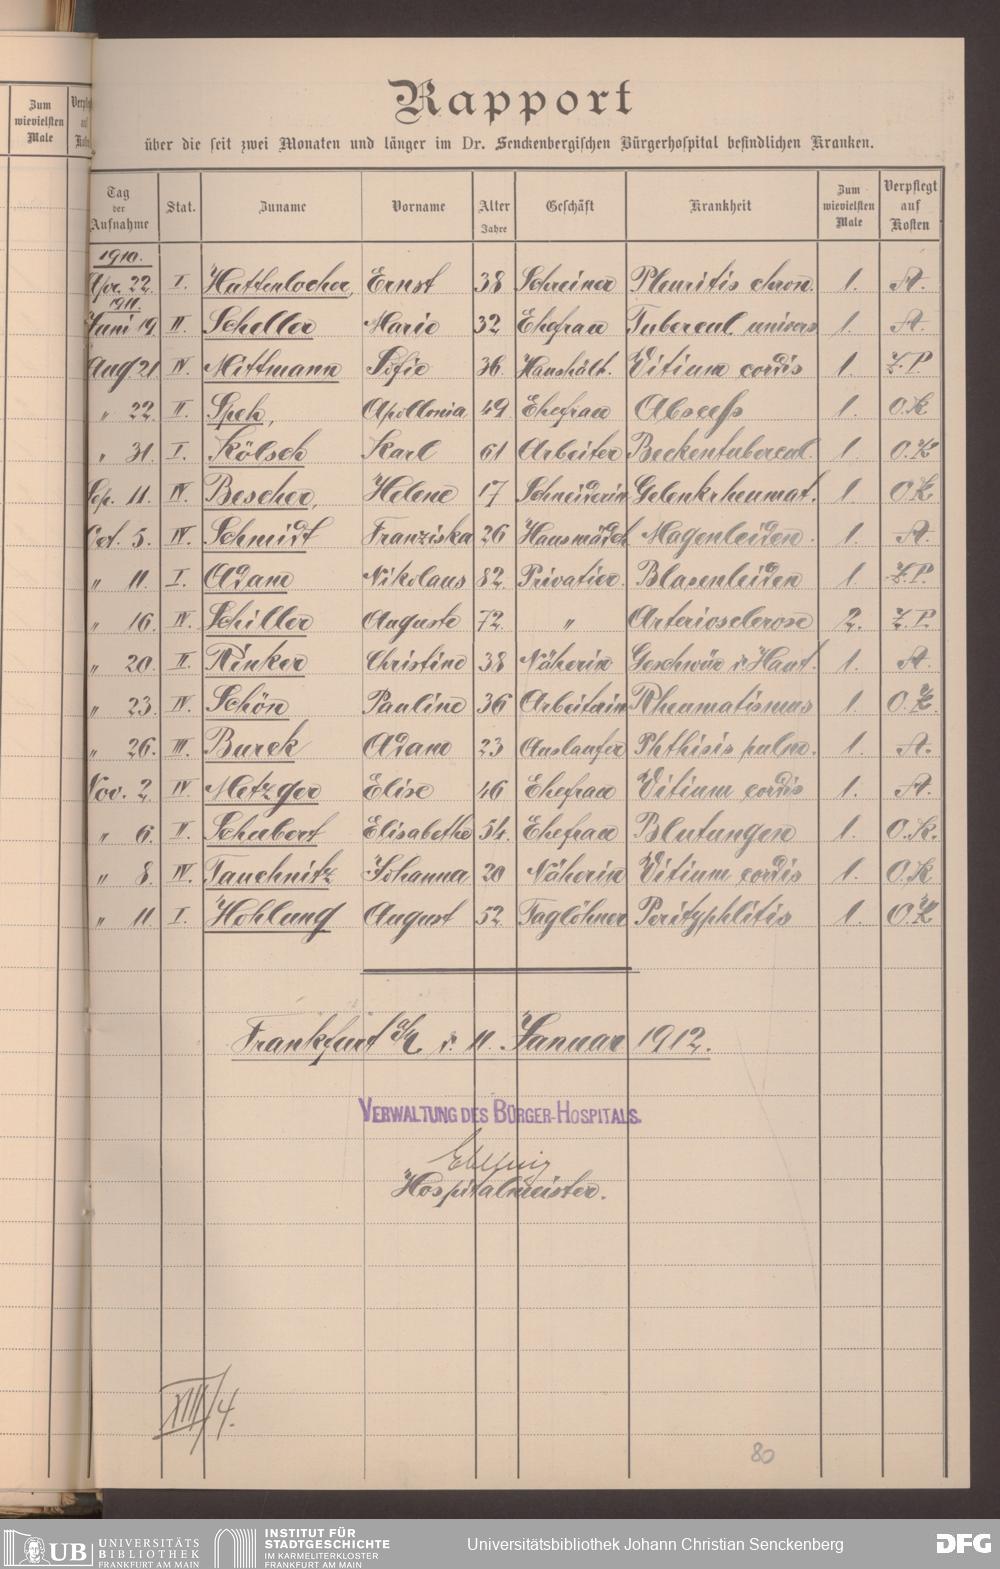 Zum
wievielsten
Male
Rapport
über die seit zwei Monaten und länger im Dr. Senckenbergischen Bürgerhospital befindlichen Kranken.
Tag der Aufnahme Stat. Zuname Vorname Alter Jahre Geschäft Krankheit Zum wievielsten Male Verpflegt auf Kosten
1910.
Apr. 22. I. Hattenlocher, Ernst 38 Schreiner Pleuritis chron. 1. A.
1911.
Juni 19 II. Scheller Marie 32 Ehefrau Tubercul. univers. 1. A.
Aug. 21 IV. Mittmann Sofie 36. Haushält. Vitium cordis 1. Z.P.
" 22. II. Speh, Apollonia 49 Ehefrau Abscess 1. O.K
" 31. I. Kölsch Karl 61 Arbeiter Beckentubercul. 1. O.K
Sep. 11. IV. Bescher, Helene 17 Schneiderin Gelenkrheumat. 1 O.K.
Oct. 5. IV. Schmidt Franziska 26 Hausmädch. Magenleiden. 1. A.
" 11. I. Adam Nikolaus 82. Privatier. Blasenleiden 1. Z.P.
" 16. IV. Schiller Auguste 72. " Arteriosclerose 2. Z.P.
" 20. II. Rinker Christine 38 Näherin Geschwür d. Haut. 1. A.
" 23. IV. Schön Pauline 36 Arbeiterin Rheumatismus 1. O.K.
" 26. III. Burck Adam 23 Auslaufer Phthisis pulm. 1. A.
Nov. 2 IV. Metzger Elise 46 Ehefrau Vitium cordis 1. A.
" 6. II. Schubert Elisabetha 54. Ehefrau Blutungen 1. O.K.
" 8. IV. Tauchnitz Johanna 20 Näherin Vitium cordis 1. O.K
" 11. I. Hohlung August 52. Taglöhner Perityphlitis 1. O.K
Frankfurt a/M. d. 11. Januar 1912.
VERWALTUNG DES BÜRGER-HOSPITALS.
Hospitalmeister.
XIII/4.
80
UB UNIVERSITÄTS
BIBLIOTHEK
FRANKFURT AM MAIN
INSTITUT FÜR
STADTGESCHICHTE
IM KARMELITERKLOSTER
FRANKFURT AM MAIN
Universitätsbibliothek Johann Christian Senckenberg
DFG